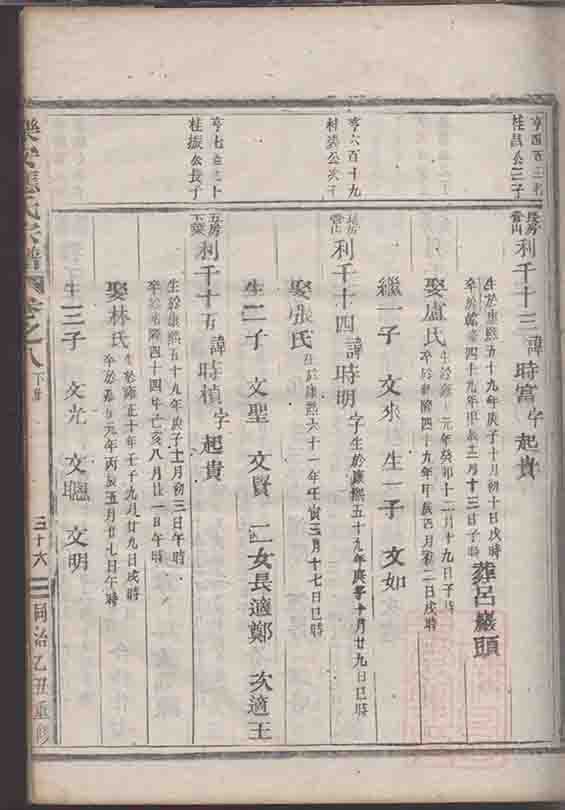 亨四百
桂昌公三子
長房
利千十三諱時富字起貴
生於康熙五十九年庚子十月初十日戌時
卒於乾隆四十九年甲辰三月十三日子時
葬呂巖頭
娶盧氏
生於雍正元年癸卯十二月十九日子時
卒於乾隆四十九年甲辰四月初二日戌時
繼一子 文來 生一子 文如
亨六百十九
公次子
長房
利千十四諱時明
字生於康熙五十九年庚子十月廿九日巳時
娶張氏
生於康熙六十一年壬寅三月十七日巳時
生二子 文聖 文賢 二女長適鄭 次適王
亨七
桂振公長子
五房
利千十五諱時楨字起貴
生於康熙五十九年庚子十月初三日午時
卒於乾隆四十四年己亥八月廿一日午時
娶林氏
生於雍正十年壬子九月廿九日戌時
卒於嘉慶元年丙辰五月廿七日午時
生三子 文光 文聰 文明
樂安 氏宗譜 卷之八
下冊
三十六
同治乙丑重修